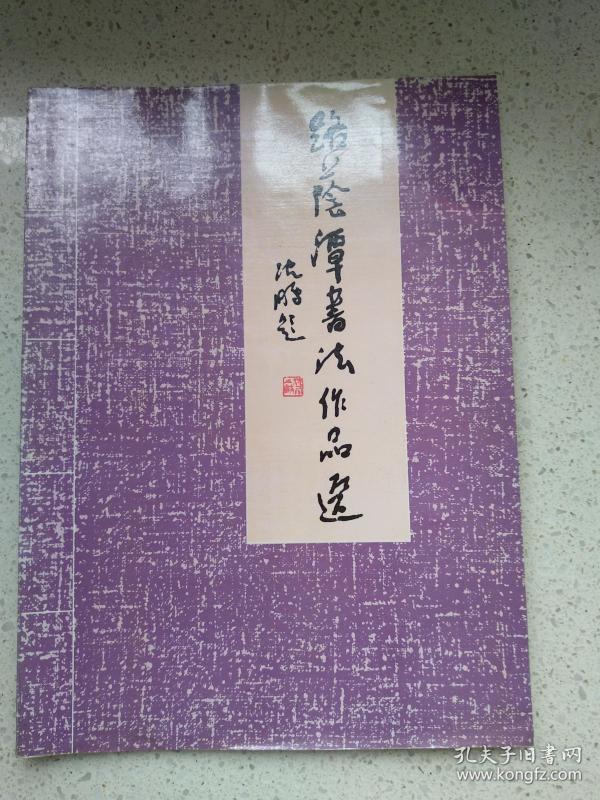 路荫潭書法作品選
沈鹏题
孔夫子旧書网
www.kongfz.com